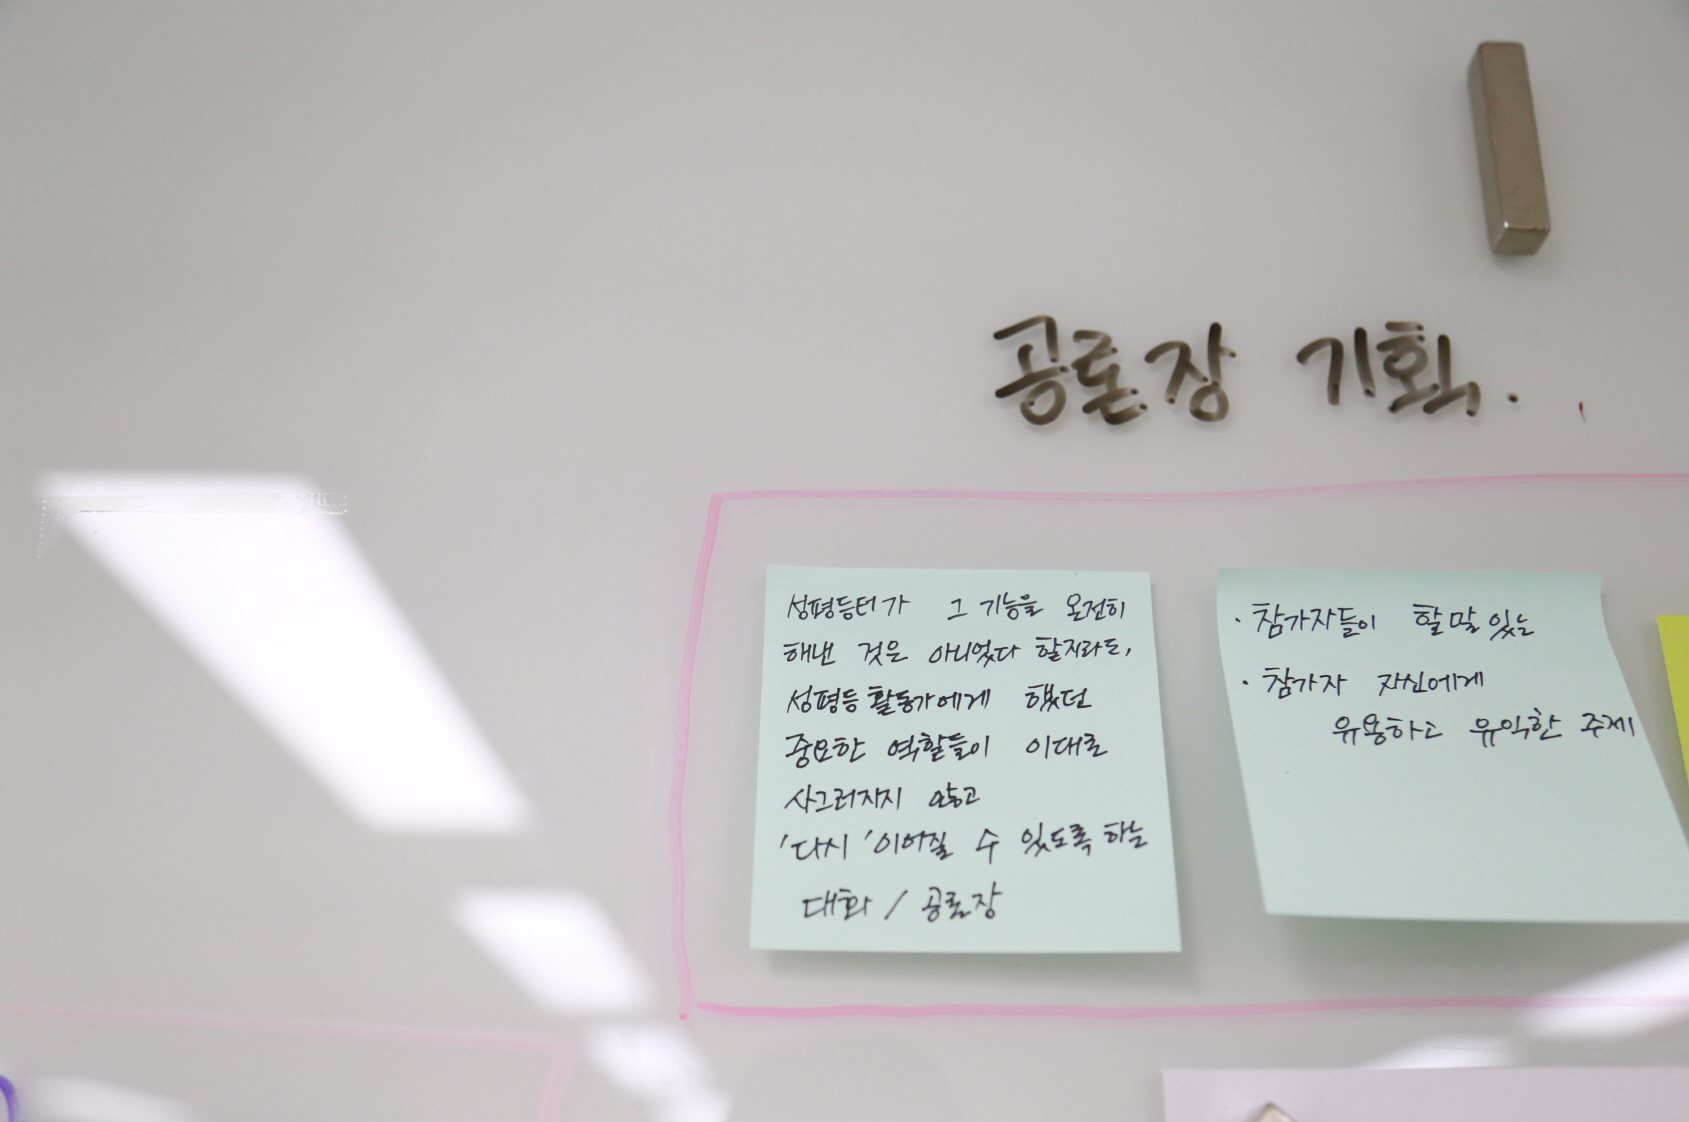 공론장 기획.
성평등터가 그 기능을 온전히
해낸 것은 아니었다 할지라도,
성평등 활동가에게 했던
중요한 역할들이 이대로
사그러지지 않고
'다시' 이어질 수 있도록 하는
대화 / 공론장
· 참가자들이 할 말 있는
· 참가자 자신에게
유용하고 유익한 주제